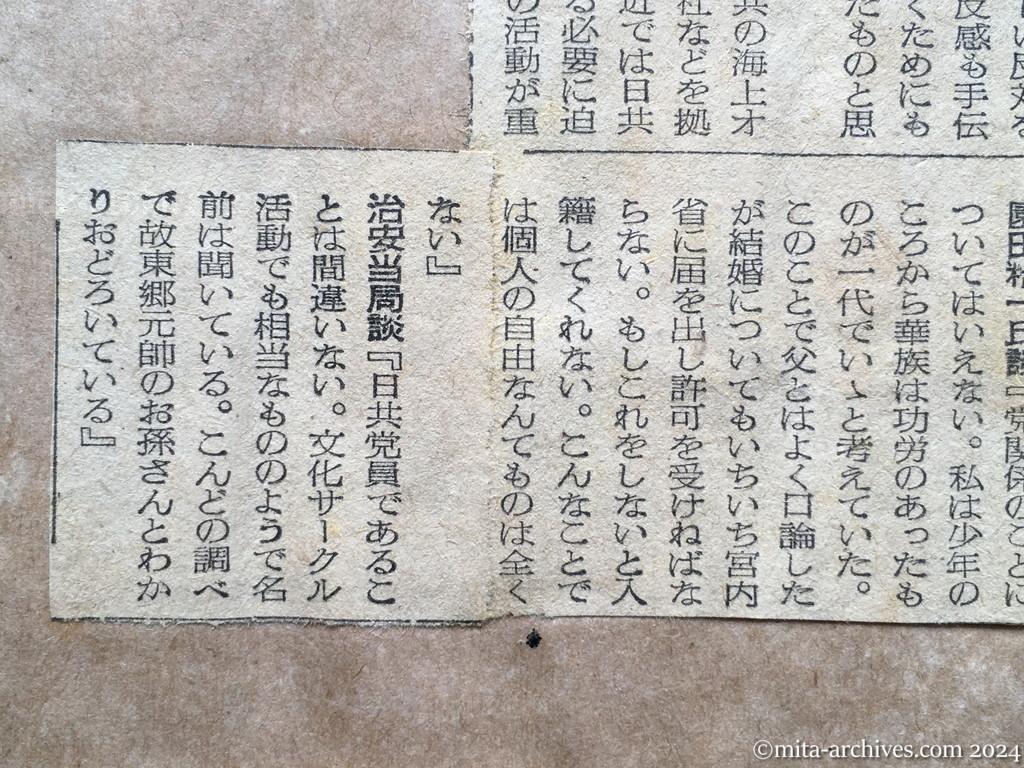 反感も手伝
くためにも
たものと思
共の海上オ
社などを拠
近では日共
る必要に迫
の活動が重
氏談『党関係のことに
ついてはいえない。私は少年の
ころから華族は功労のあったも
のが一代でいゝと考えていた。
このことで父とはよく口論した
が結婚についてもいちいち宮内
省に届を出し許可を受けねばな
らない。もしこれをしないと入
籍してくれない。こんなことで
は個人の自由なんてものは全く
ない』
治安当局談『日共党員であるこ
とは間違いない。文化サークル
活動でも相当なもののようで名
前は聞いている。こんどの調べ
で故東郷元師のお孫さんとわか
りおどろいている』
©mita-archives.com 2024